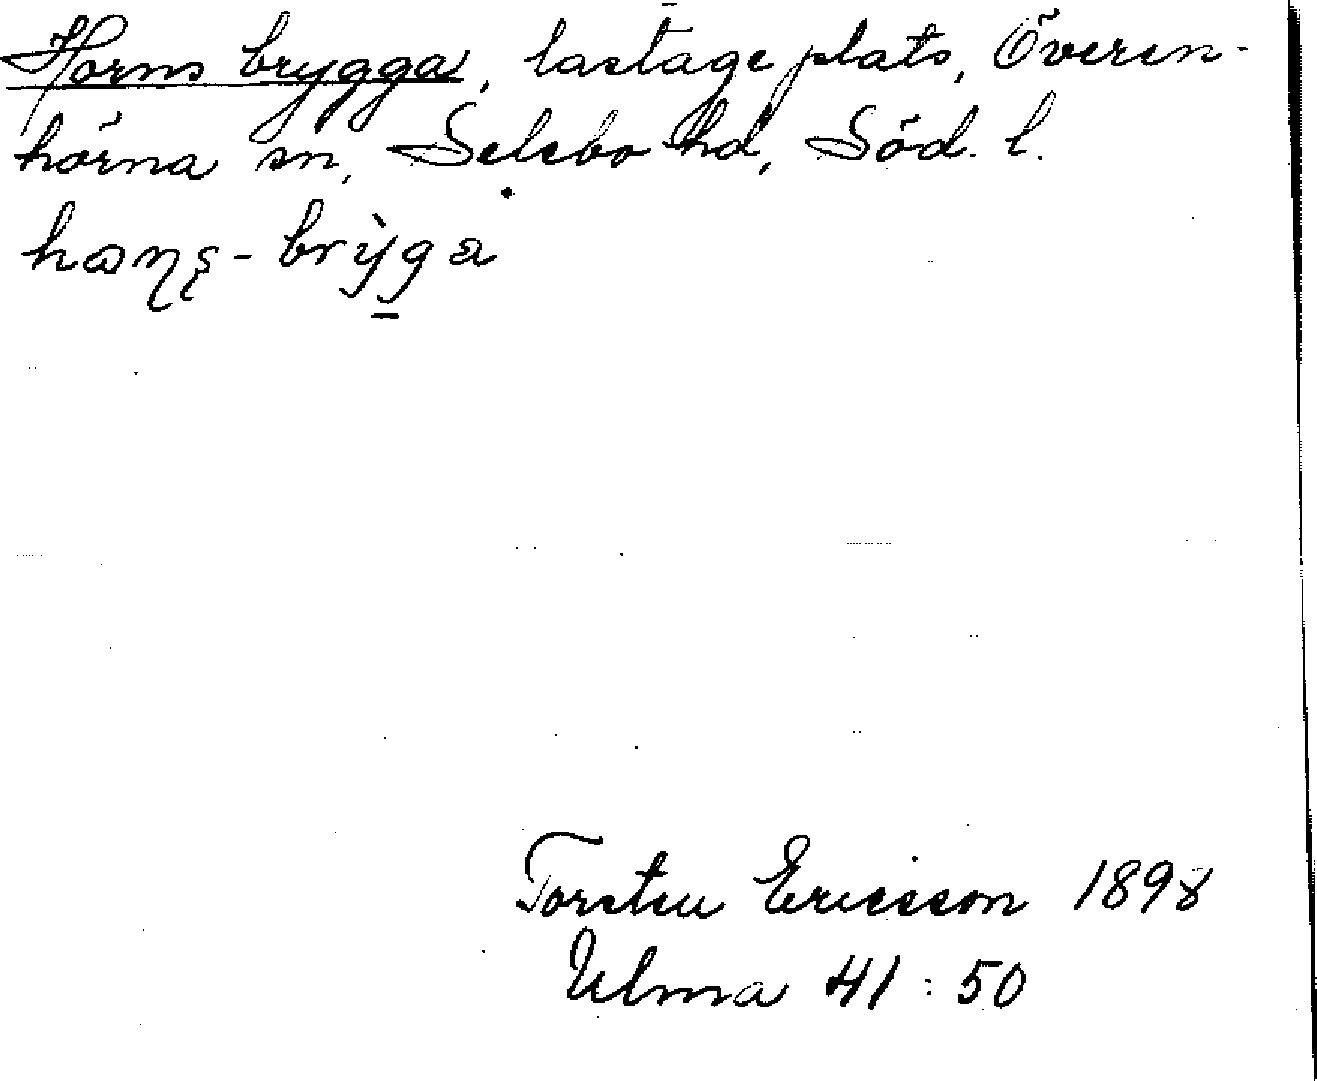 Horns brygga, lastageplats, Överen-
hörna sn, Selebo hd, Söd. l.
Torsten Ericsson 1898
Ulma 41:50